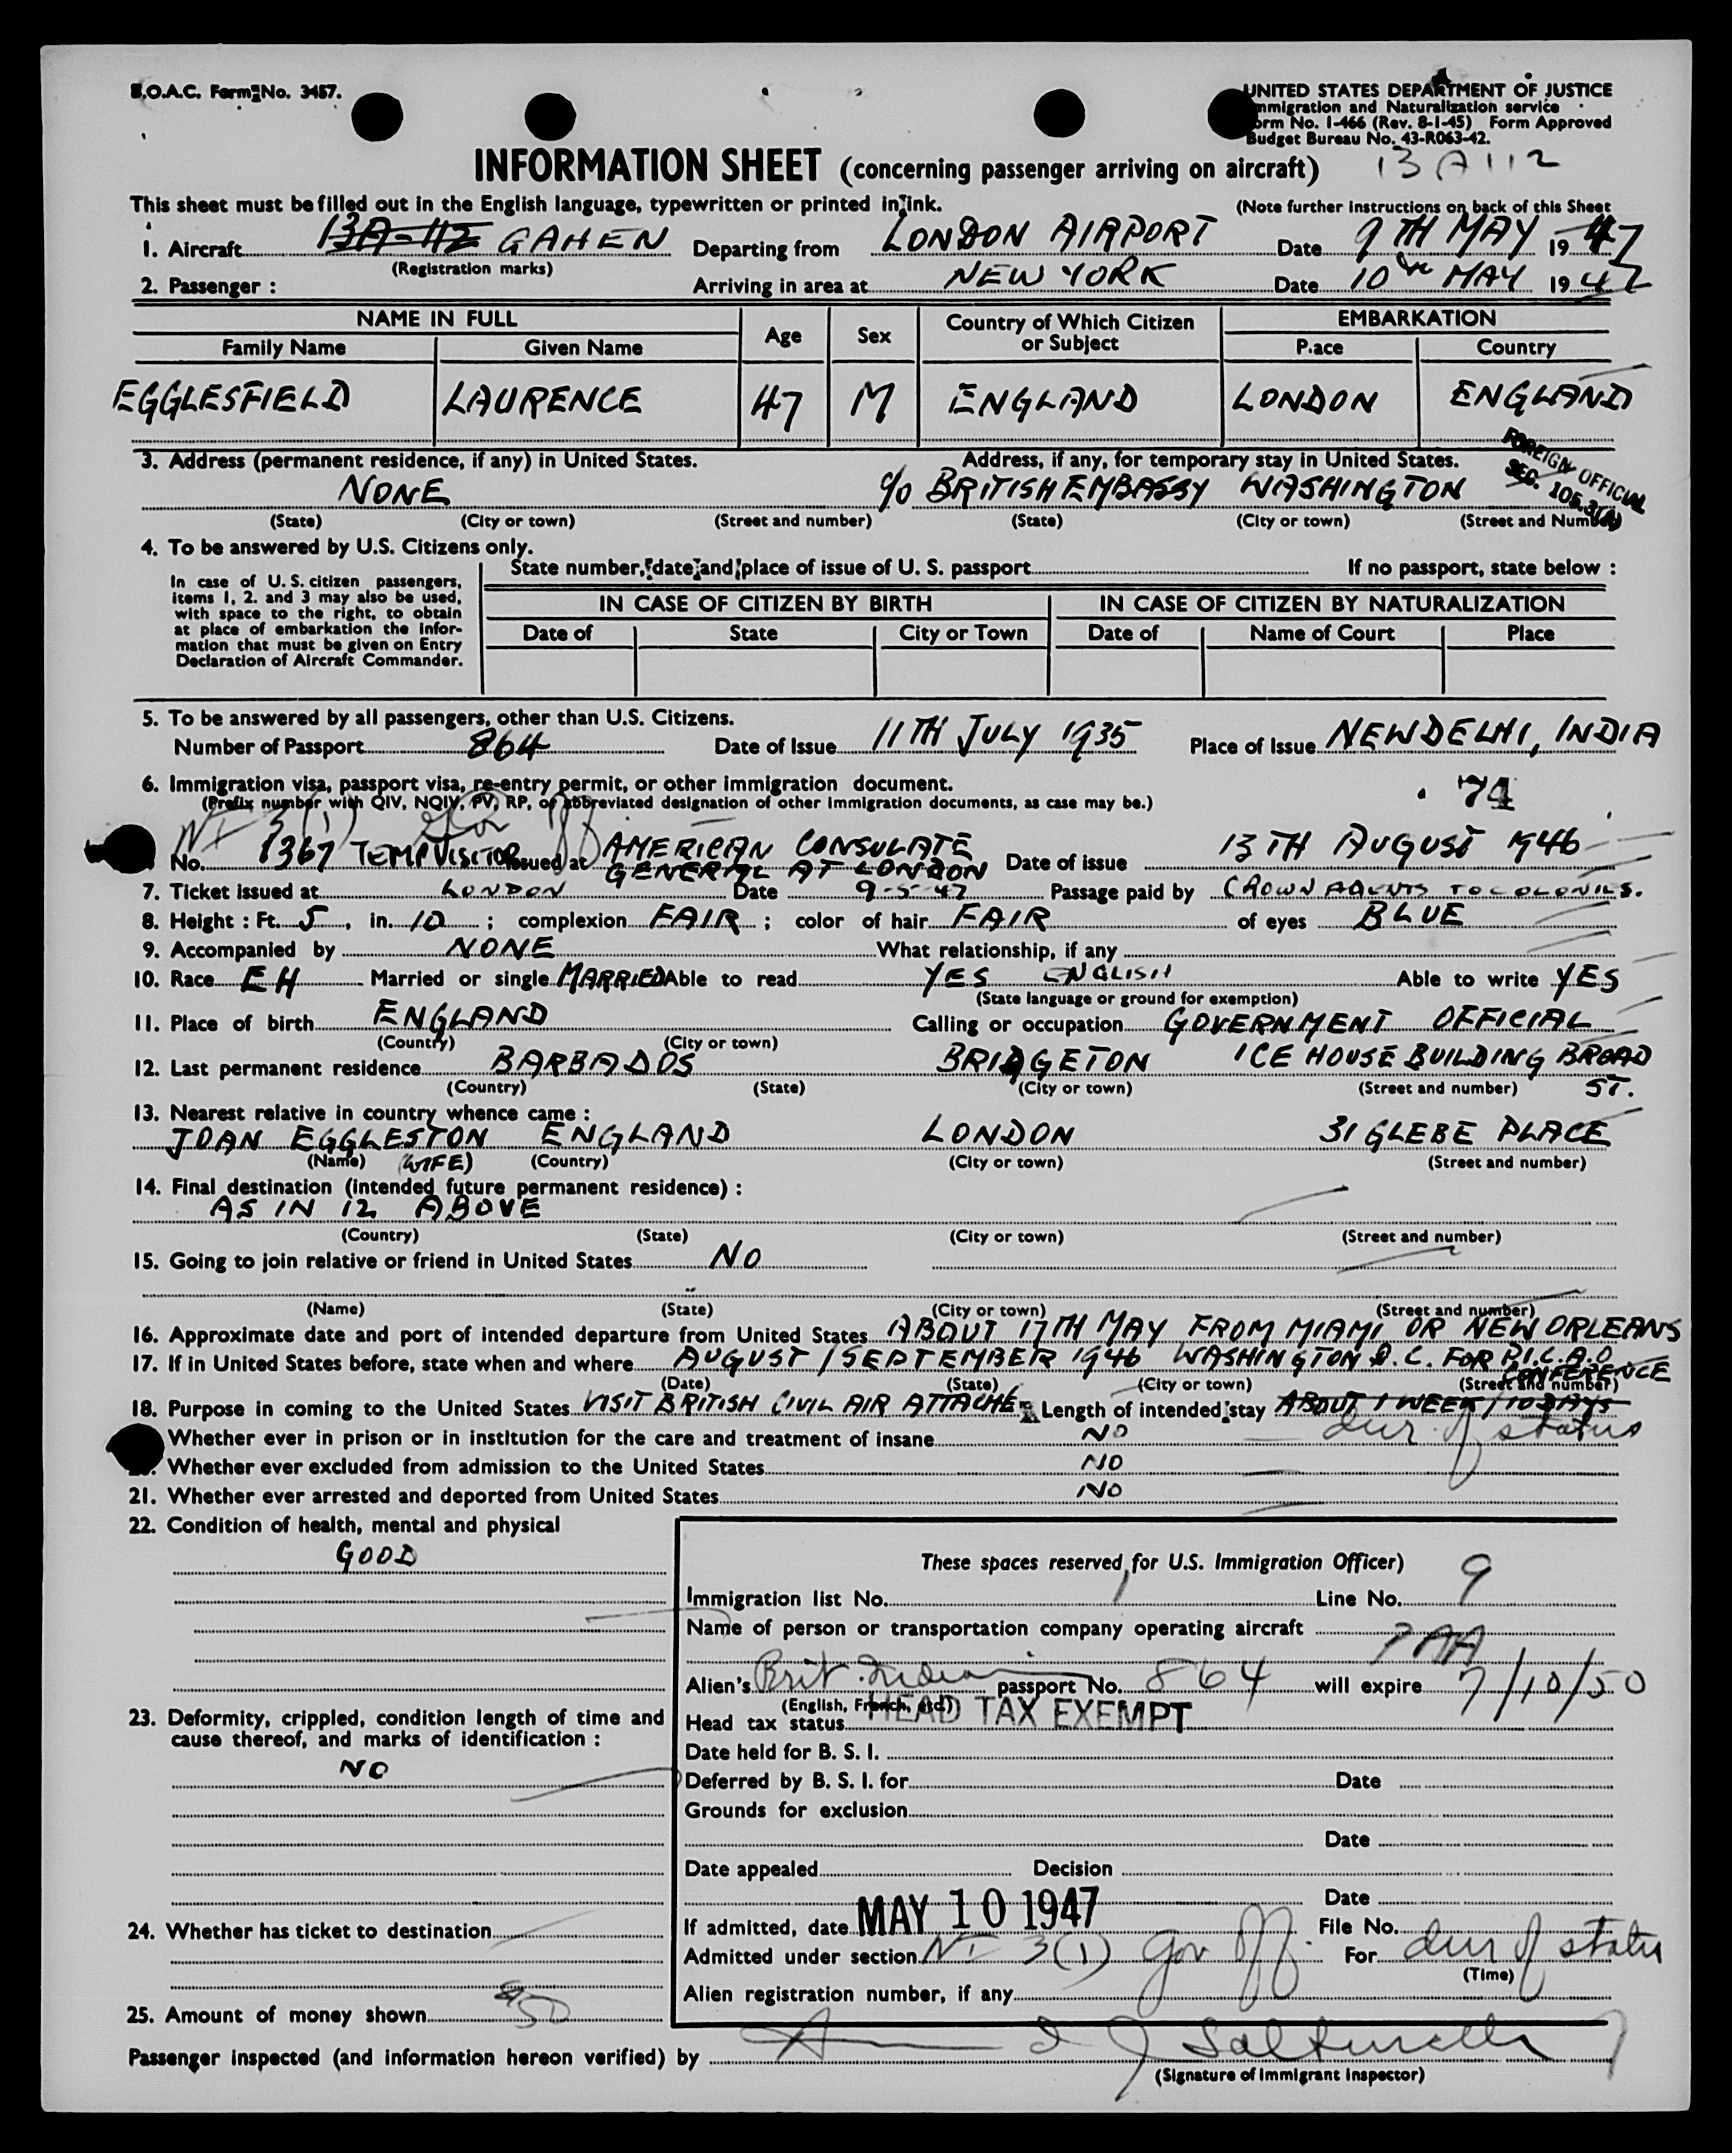 B.O.A.C. Form No. 3457.
UNITED STATES DEPARTMENT OF JUSTICE
Immigration and Naturalization service
Form No. I-466 (Rev. 8-1-45) Form Approved
Budget Bureau No. 43-R063-42.
INFORMATION SHEET (concerning passenger arriving on aircraft) BA112
This sheet must be filled out in the English language, typewritten or printed in ink. (Note further instructions on back of this Sheet
1. Aircraft BA-112 GAHEN Departing from LONDON AIRPORT Date 9TH MAY 1947
(Registration marks)
2. Passenger : Arriving in area at NEW YORK Date 10th MAY 1947
NAME IN FULL Age Sex Country of Which Citizen or Subject EMBARKATION
Family Name Given Name Place Country
EGGLESFIELD LAURENCE 47 M ENGLAND LONDON ENGLAND
3. Address (permanent residence, if any) in United States. Address, if any, for temporary stay in United States.
FOREIGN OFFICIAL
SEC. 105.3(A)
NONE c/o BRITISH EMBASSY WASHINGTON
(State) (City or town) (Street and number) (State) (City or town) (Street and Number)
4. To be answered by U.S. Citizens only.
State number, date and place of issue of U. S. passport If no passport, state below :
In case of U. S. citizen passengers,
items 1, 2. and 3 may also be used,
with space to the right, to obtain
at place of embarkation the infor-
mation that must be given on Entry
Declaration of Aircraft Commander.
IN CASE OF CITIZEN BY BIRTH IN CASE OF CITIZEN BY NATURALIZATION
Date of State City or Town Date of Name of Court Place
5. To be answered by all passengers, other than U.S. Citizens.
Number of Passport 864 Date of Issue 11TH JULY 1935 Place of Issue NEW DELHI, INDIA
6. Immigration visa, passport visa, re-entry permit, or other immigration document. 74
(Prefix number with QIV, NQIV, PV, RP, or abbreviated designation of other immigration documents, as case may be.)
NI 3(1) Gov Off
No. 1367 TEMP VISITOR Issued at AMERICAN CONSULATE GENERAL AT LONDON Date of issue 13TH AUGUST 1946
7. Ticket issued at LONDON Date 9-5-47 Passage paid by CROWN AGENTS TO COLONIES.
8. Height : Ft. 5, in. 10 ; complexion FAIR ; color of hair FAIR of eyes BLUE
9. Accompanied by NONE What relationship, if any
10. Race EH Married or single MARRIED Able to read YES ENGLISH Able to write YES
(State language or ground for exemption)
11. Place of birth ENGLAND Calling or occupation GOVERNMENT OFFICIAL
(Country) (City or town)
12. Last permanent residence BARBADOS BRIDGETON ICE HOUSE BUILDING BROAD ST.
(Country) (State) (City or town) (Street and number)
13. Nearest relative in country whence came :
JOAN EGGLESTON ENGLAND LONDON 31 GLEBE PLACE
(Name) (WIFE) (Country) (City or town) (Street and number)
14. Final destination (intended future permanent residence) :
AS IN 12 ABOVE
(Country) (State) (City or town) (Street and number)
15. Going to join relative or friend in United States NO
(Name) (State) (City or town) (Street and number)
16. Approximate date and port of intended departure from United States ABOUT 17TH MAY FROM MIAMI OR NEW ORLEANS
17. If in United States before, state when and where AUGUST / SEPTEMBER 1946 WASHINGTON D.C. FOR P.I.C.A.O CONFERENCE
(Date) (State) (City or town) (Street and number)
18. Purpose in coming to the United States VISIT BRITISH CIVIL AIR ATTACHE Length of intended stay ABOUT 1 WEEK / 10 DAYS
dur of status
Whether ever in prison or in institution for the care and treatment of insane NO
Whether ever excluded from admission to the United States NO
21. Whether ever arrested and deported from United States NO
22. Condition of health, mental and physical
GOOD
These spaces reserved for U.S. Immigration Officer)
Immigration list No. 1 Line No. 9
Name of person or transportation company operating aircraft PAA
Alien's Brit. Indian passport No. 864 will expire 7/10/50
(English, French, etc.)
Head tax status HEAD TAX EXEMPT
23. Deformity, crippled, condition length of time and
cause thereof, and marks of identification :
NO
Date held for B. S. I.
Deferred by B. S. I. for Date
Grounds for exclusion
Date
Date appealed Decision
Date
24. Whether has ticket to destination
If admitted, date MAY 10 1947 File No.
Admitted under section NI 3(1) Gov Off. For dur of status
(Time)
Alien registration number, if any
25. Amount of money shown $50
Passenger inspected (and information hereon verified) by
(Signature of Immigrant Inspector)